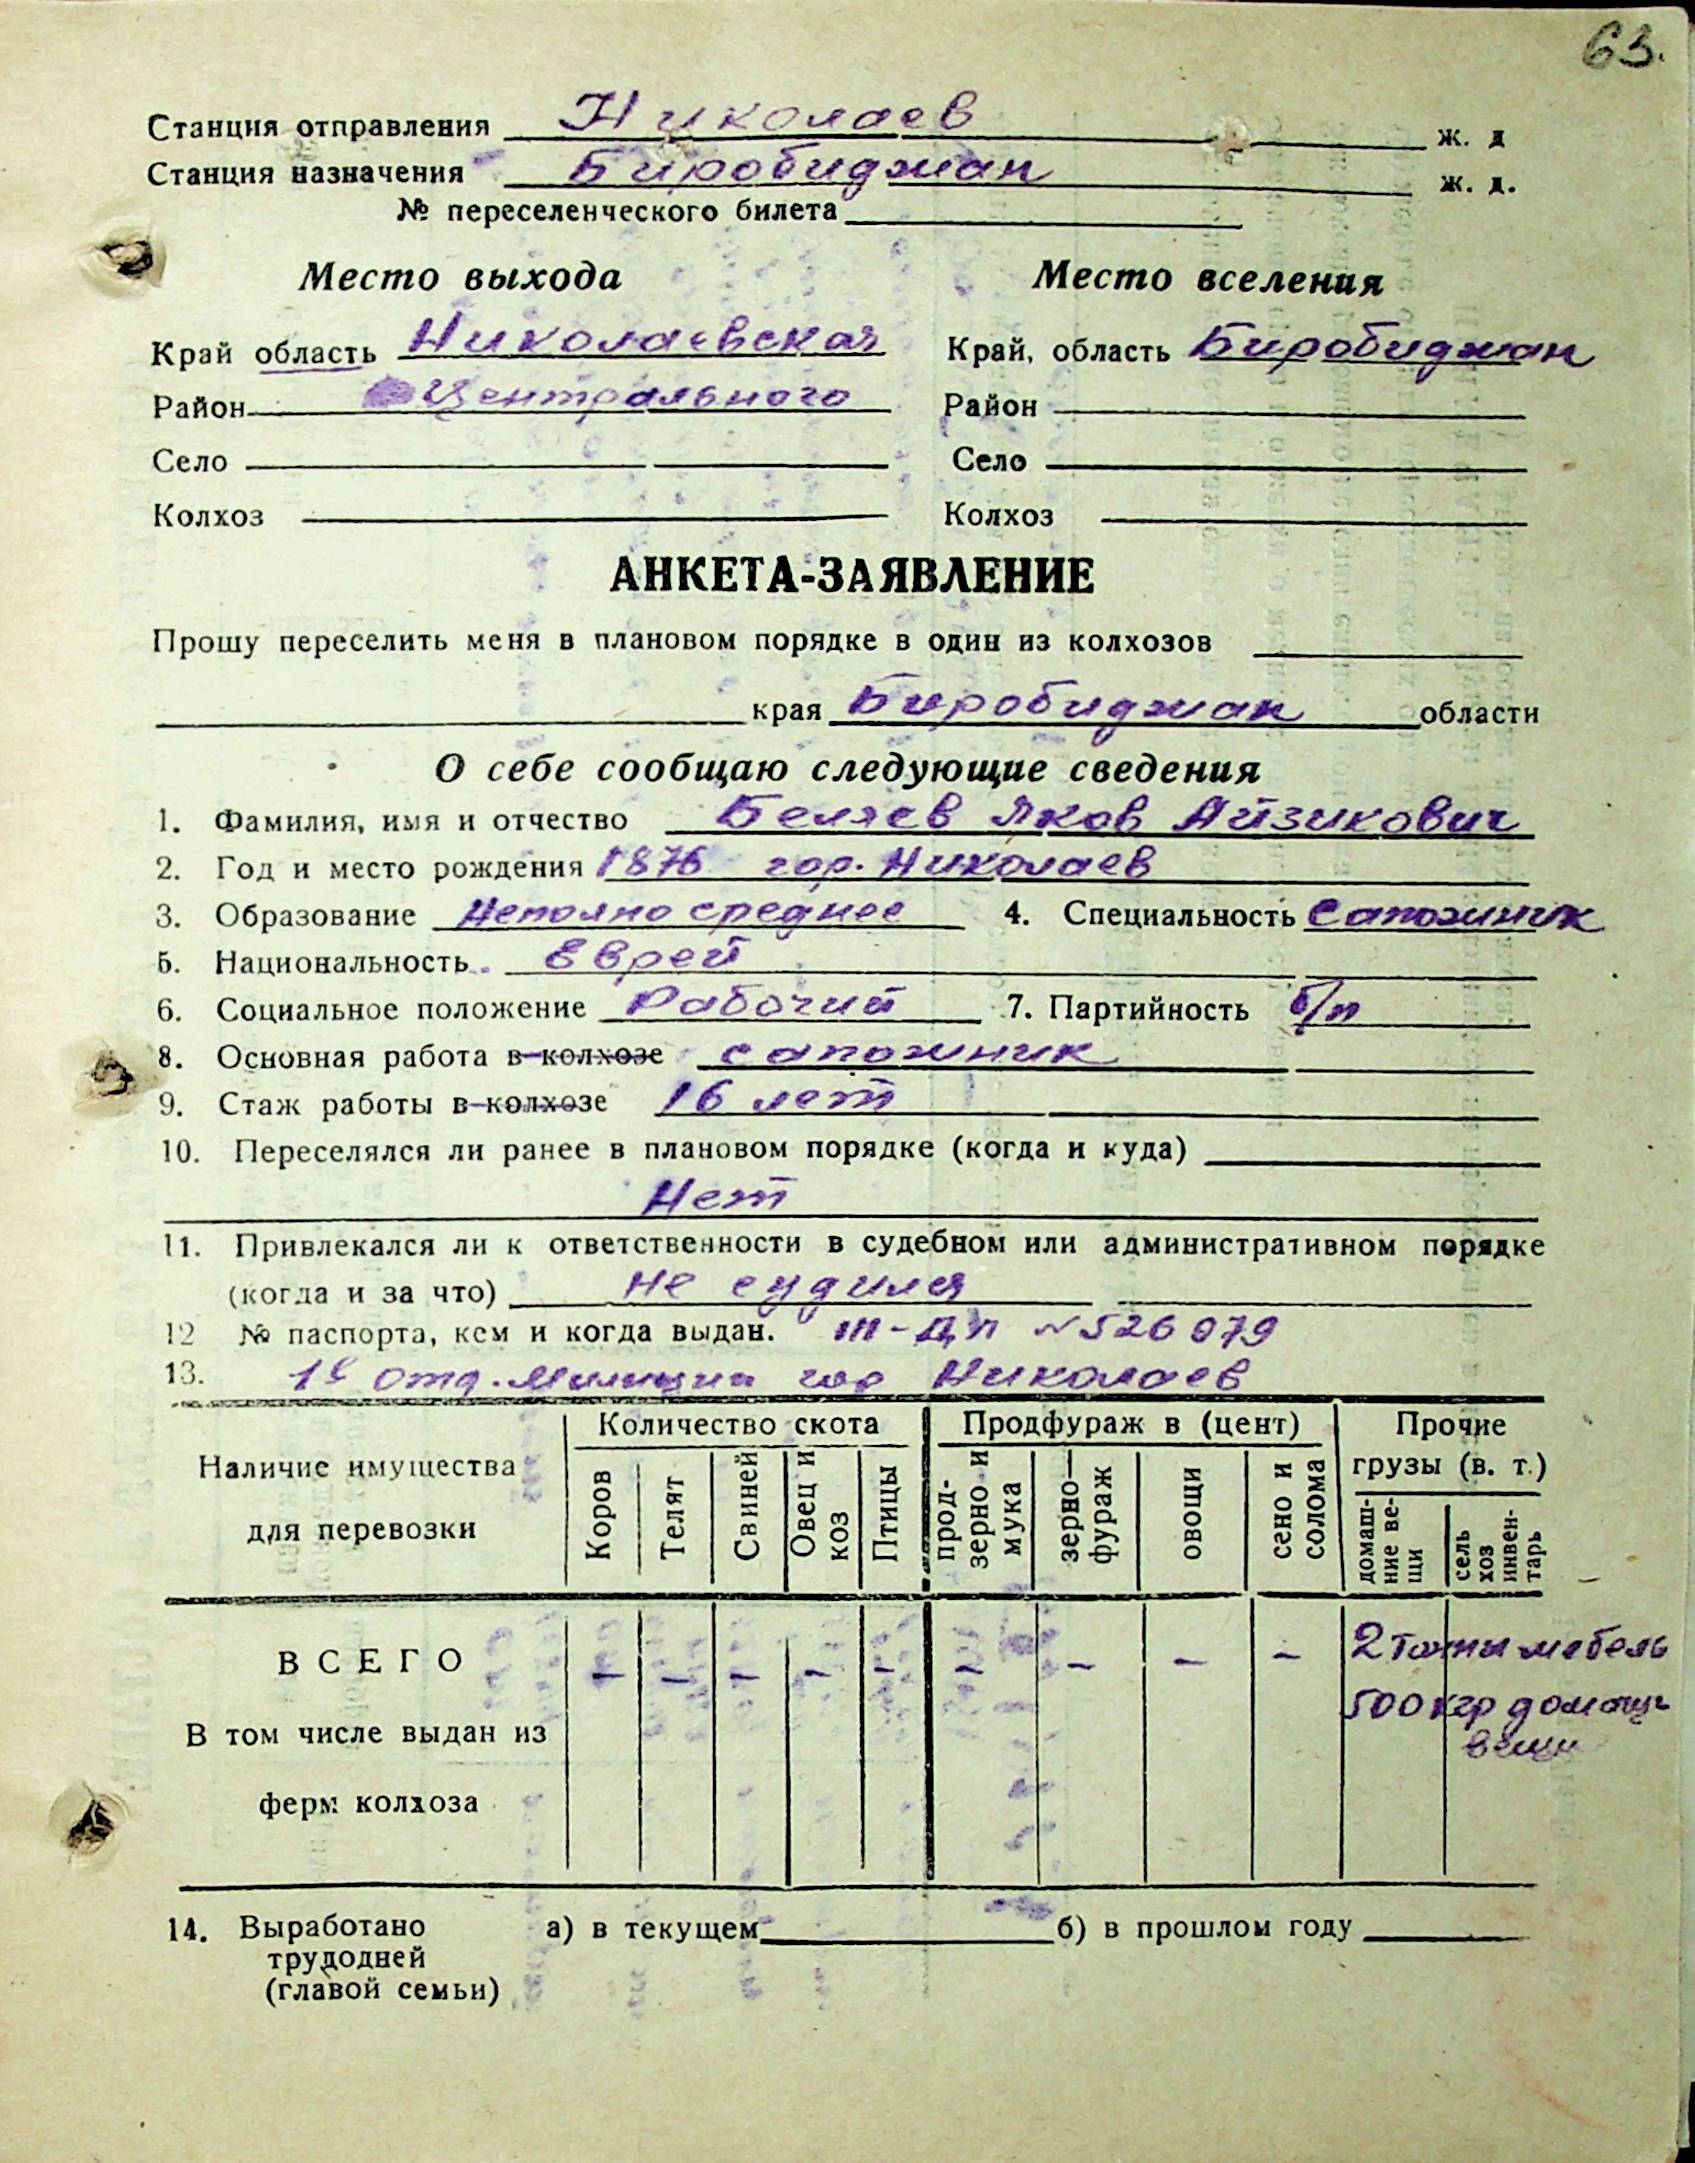 63.
Станция отправления Николаев ж. д
Станция назначения Биробиджан ж. д.
№ переселенческого билета
Место выхода Место вселения
Край область Николаевская Край, область Биробиджан
Район Центрального Район
Село Село
Колхоз Колхоз
АНКЕТА-ЗАЯВЛЕНИЕ
Прошу переселить меня в плановом порядке в один из колхозов
края Биробиджан области
О себе сообщаю следующие сведения
1. Фамилия, имя и отчество Беляев Яков Айзикович
2. Год и место рождения 1876 гор. Николаев
3. Образование Неполно среднее 4. Специальность Сапожник
5. Национальность Еврей
6. Социальное положение Рабочий 7. Партийность б/п
8. Основная работа в колхозе сапожник
9. Стаж работы в колхозе 16 лет
10. Переселялся ли ранее в плановом порядке (когда и куда)
Нет
11. Привлекался ли к ответственности в судебном или административном порядке
(когда и за что) не судился
12 № паспорта, кем и когда выдан. № 526079
13. отд. Милиции гор Николаев
Наличие имущества для перевозки Количество скота Продфураж в (цент) Прочие грузы (в. т.)
Коров Телят Свиней Овец и коз Птицы прод-зерно и мука зерно-фураж овощи сено и солома домаш-ние ве-щи сель хоз инвен-тарь
ВСЕГО - - - - - - - - - 2 тонны мебель
500 кгр домащ
вещи
В том числе выдан из
ферм колхоза
14. Выработано а) в текущем б) в прошлом году
трудодней
(главой семьи)